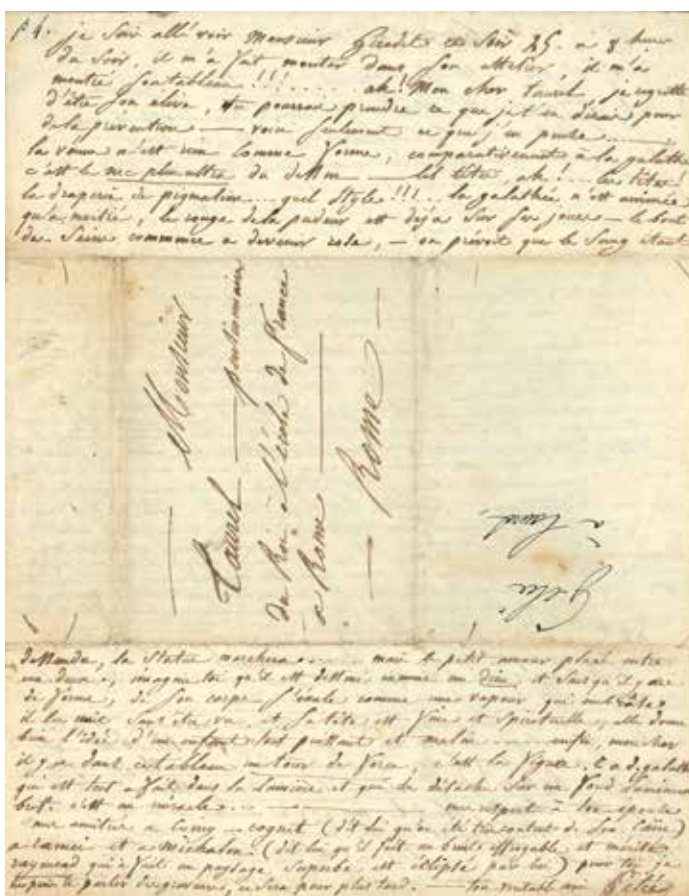 P 4. je suis allé voir Monsieur Girodet ce Soir 25. à 8 heure
du Soir, il m'a fait monter dans Son attelier, il m'a
montré Son tableau !!!...... ah! Mon cher Taurel, je regrette
d'être Son élève, tu pourrais prendre ce que je t'en dirai pour
de la prévention — voici seulement ce que j'en pense ......
la venus n'est rien comme forme, comparativement à la galathée
c'est le nec plus ultra du dessin — les têtes, ah!... les têtes!
la draperie de pigmalion... quel Style!!!.. la galathée n'est animée
qu'a moitié, le rouge de la pudeur est deja Sur Ses joues — le bout
des Seins commence a devenir rose, — on prévoit que le Sang étant
Monsieur
Taurel pensionnaire
du Roi à l'école de france
a Rome
Rome
à Taurel
descendu, la Statue marchera..... mais le petit amour placé entre
eux deux, imagine toi qu'il est dessiné comme un dieu, et
de forme, de Son corps comme une vapeur qui
il les unit Sans être vu, et Sa tête est fine et Spirituelle, elle donne
bien l'idée d'un enfant tout puissant et malin — enfin, mon cher
il y a dans ce tableau un tour de force, c'est la figure de galathée
qui est tout a fait dans la lumière et qui Se détache Sur un fond
c'est un miracle... — mes respect à ton épouse
mes amitiés a — cognet (dit lui qu'on été très content de Son Caïn)
a et a michalon. (dit lui qu'il fait un bruit effroyable et mérité
raymond qui a fait un paysage Superbe est éclipsé par lui) pour toi je
te parler de gravure, ce Sera pour plus tard. — ton